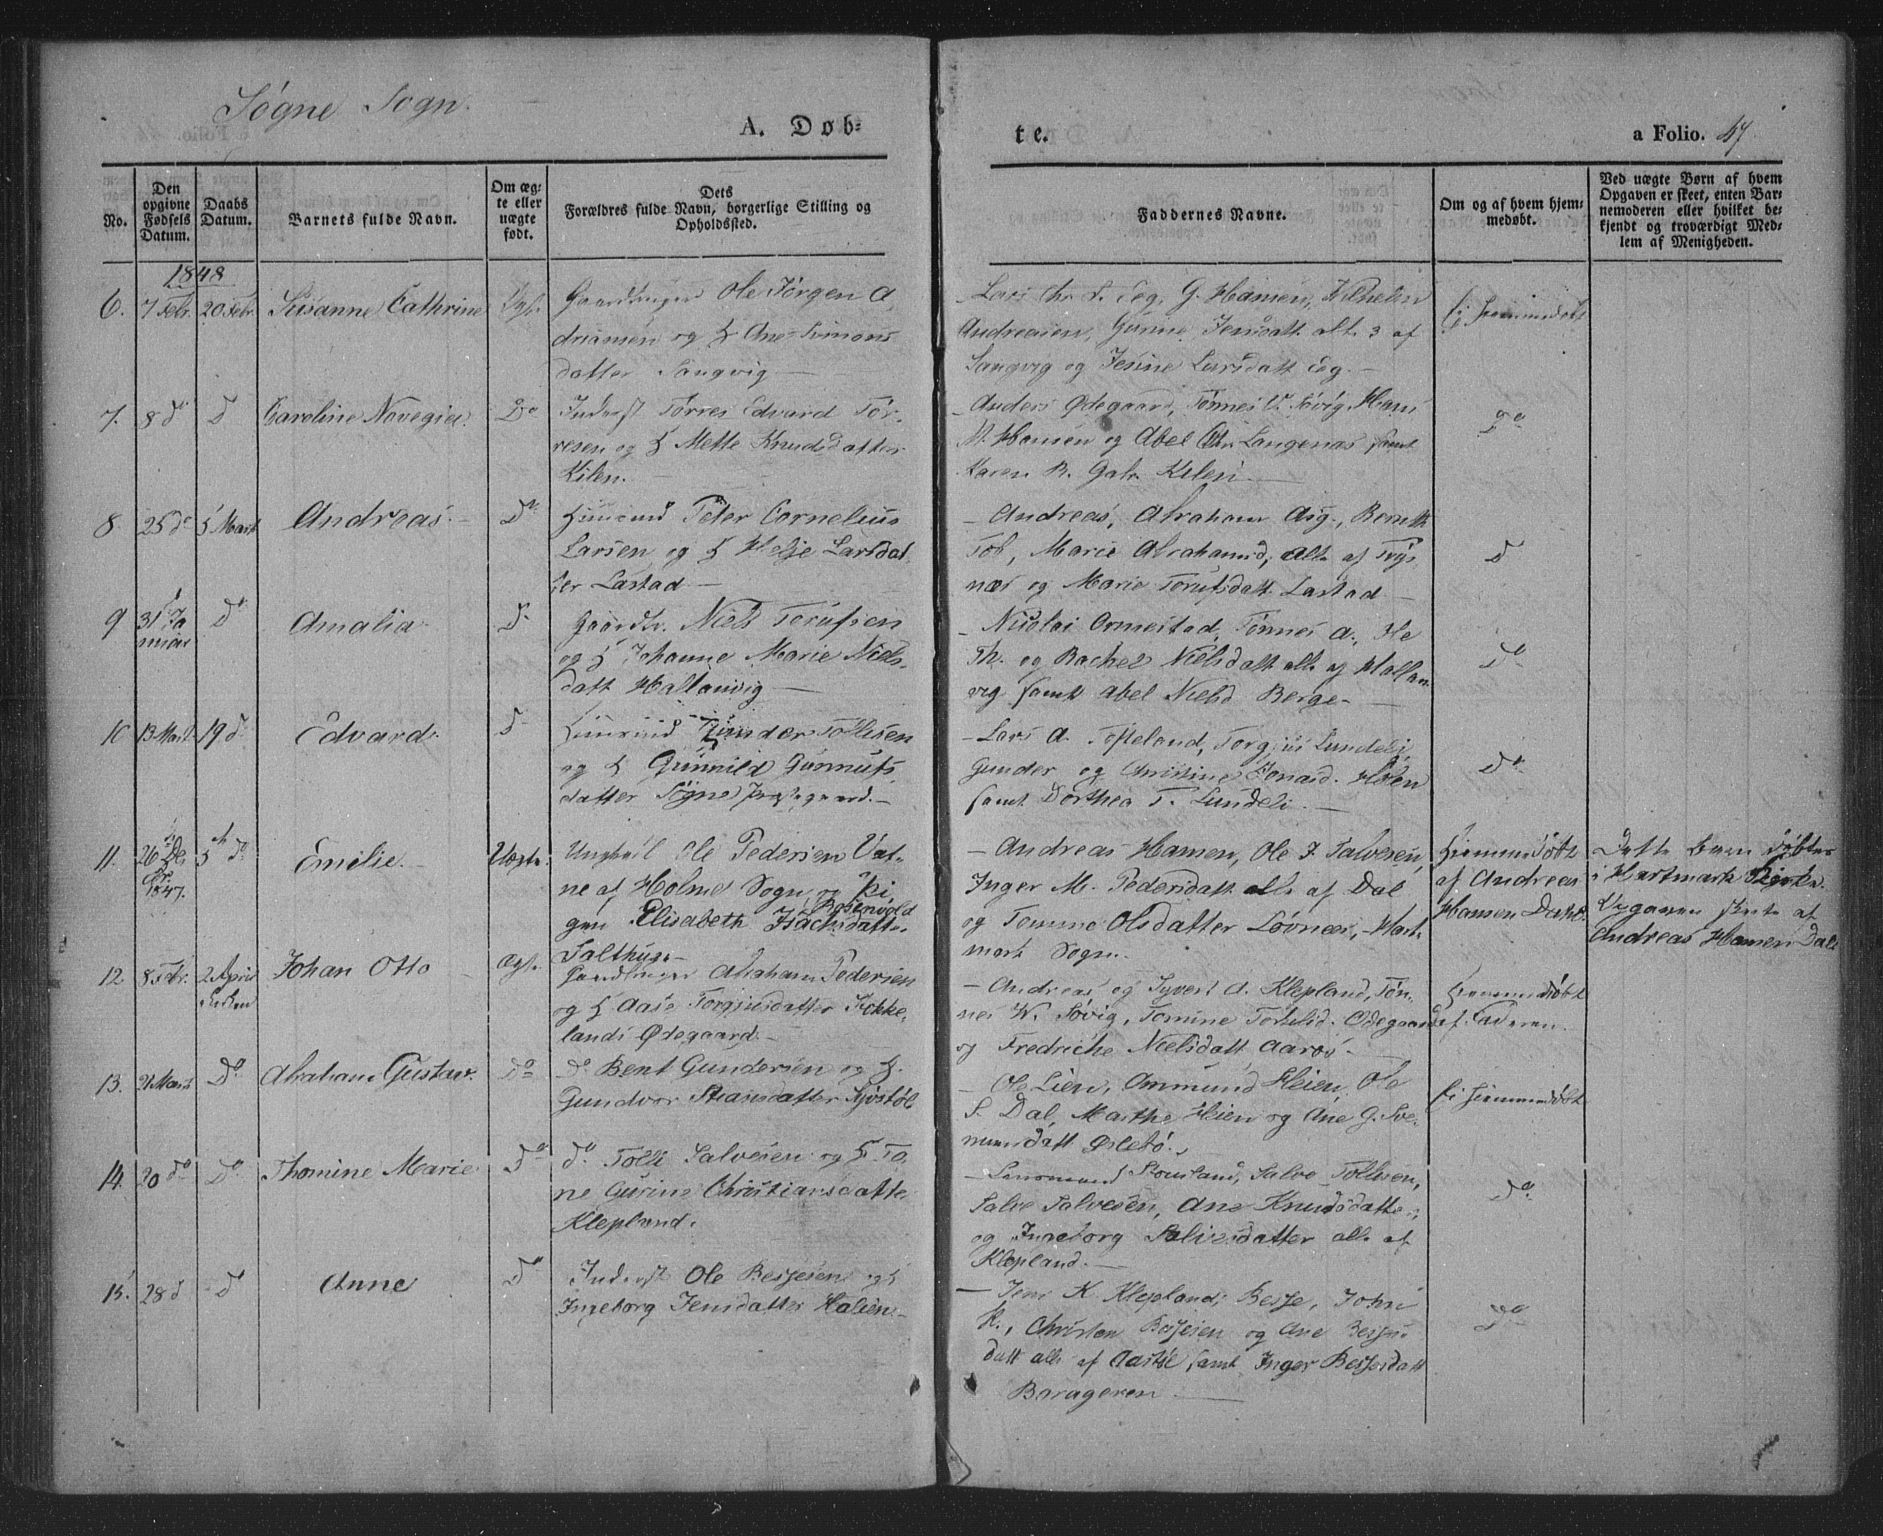 Søgne Sogn.
A. Døb-
te.
a Folio. 47
No.
Den opgivne Fødsels Datum.
Daabs Datum.
Barnets fulde Navn.
Om ægte eller uægte født.
Dets Forældres fulde Navn, borgerlige Stilling og Opholdssted.
Faddernes Navne.
Om og af hvem hjemmedøbt.
Ved uægte Børn af hvem Opgaven er skeet, enten Barnemoderen eller hvilket bekjendt og troværdigt Medlem af Menigheden.
1848
6. 7 Febr. 20 Febr. Susanne Cathrine Ægt.
Ole Jørgen A
driansen og H Ane
datter Langvig —
Andreasen, Gunne Jensdatt alle 3 af
Langvig og Jesine Larsdatt Eeg. —
Ei Hjemmedøbt
7. 8 do D Caroline Novegia Do
Inderst Tørres Edvard Tør-
resen og H Mette Knudsdatter
Kilen. —
— Anders Ødegaard, Tønnes Søvig, Hans
M. Hansen og Abel Chr. Langenæs samt
Karen R. Kilen —
Do
8 25 do 5 Mart Andreas. Do
Huusmd Peter Cornelius
Larsen og H Helje Larsdat-
ter Lastad —
— Andreas, Abraham Aug., Berntt
Tob, Marie Abrahamsd, alle af Trys
nær og Marie Torufsdatt Lastad —
D
9 31 Ja
nuar Do Amalia D
Gaardbr. Niels Torufsen
og H Johanne Marie Niels-
datt Hallanvig —
— Nicolai Ormestad, Tønnes A., Ole
Th. og Rachel Nielsdatt alle af Hallan-
vig samt Abel Nielsd Berge —
Do
10 13 Mart 19 d Edvard D
Huusmd Gunder Tollisen
og H Gunnild Gunnufs
datter Søgne Præstegaard. —
— Lars A. Tofteland, Lundeli
Gunder og Christine Jonasd. Hølen
samt Dorthea T. Lundeli —
Do
11. 26
1847. 5 do Emilie. — Uægte.
Ungkarl Ole Pedersen Vat-
ne af Holme Sogn og Pi
Rosenvold
gen Elisabeth Isachsdatt
Salthus —
— Andreas Hansen, Ole J. Salvesen,
Inger M. Pedersdatt alle af Dal
og Tomine Olsdatter Løvnæs, Hart-
mark Sogn. —
Hjemmedøbt
af Andreas
Hansen Dahl.
Dette Barn døbtes
i Hartmark Kirke.
Opgaven skete af
Andreas Hansen Dahl
12 8 Febr. 2 April
Johan Otto — Ægt.
Abraham Pedersen
og H Aase Torgjusdatter Fokke-
lands Ødegaard —
— Andreas og Syvert A. Klepland, Tøn-
nes W. Søvig, Tomine Torkelsd. Odegaard
og Fredriche Nielsdatt Aaros —
Hjemmedøbt
af Faderen.
13. 21 Mart Do Abraham Gustav. Do
do Bent Gundersen og H.
Gundvor Stiansdatter Kjøstøl
— Ole Lien, Ammund Heien, Ole
S. Dal, Marthe Heien og Ane G. Sve-
nunsdatt Øslebø.
Ei Hjemmedøbt
14. 20 do Do Thomine Marie Do
do Tolli Salvesen og H To
ne Gurine Christiansdatte
Klepland.
Stousland, Salve Tollisen,
Salve Salvesen, Ane Knudsdatter,
og Ingeborg Salvesdatter alle af
Klepland. —
Do
15. 28 d D Anne Do
Inderst Ole Bessesen og H
Ingeborg Jensdatter Halsen —
— Jens K. Klepland, Besse, John
K., Christen Bessesen og Ane Besses-
datt alle af samt Inger Bessesdatt
Barageren —
Do